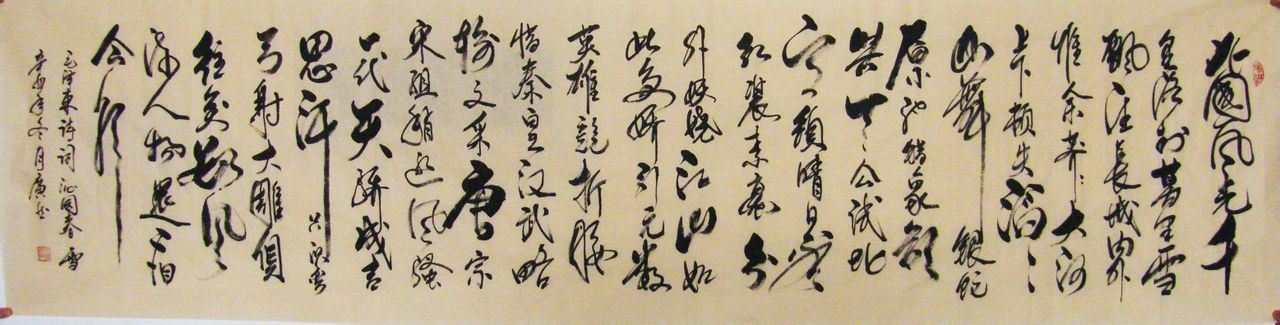 北國風光千
里冰封萬里雪
飘望長城内外
惟余莽〻大河
上下顿失滔〻
山舞銀蛇
原驰蜡象欲
天公试比
高须晴日看
红装素裹分
外妖娆江山如
此多娇引元数
英雄競折腰
惜秦皇汉武略
输文采唐宗
宋祖稍逊风骚
一代天骄成吉
思汗只识弯
弓射大雕俱
往矣数风
流人物還看
今朝
毛泽東诗词沁园春雪
辛卯年冬月廣